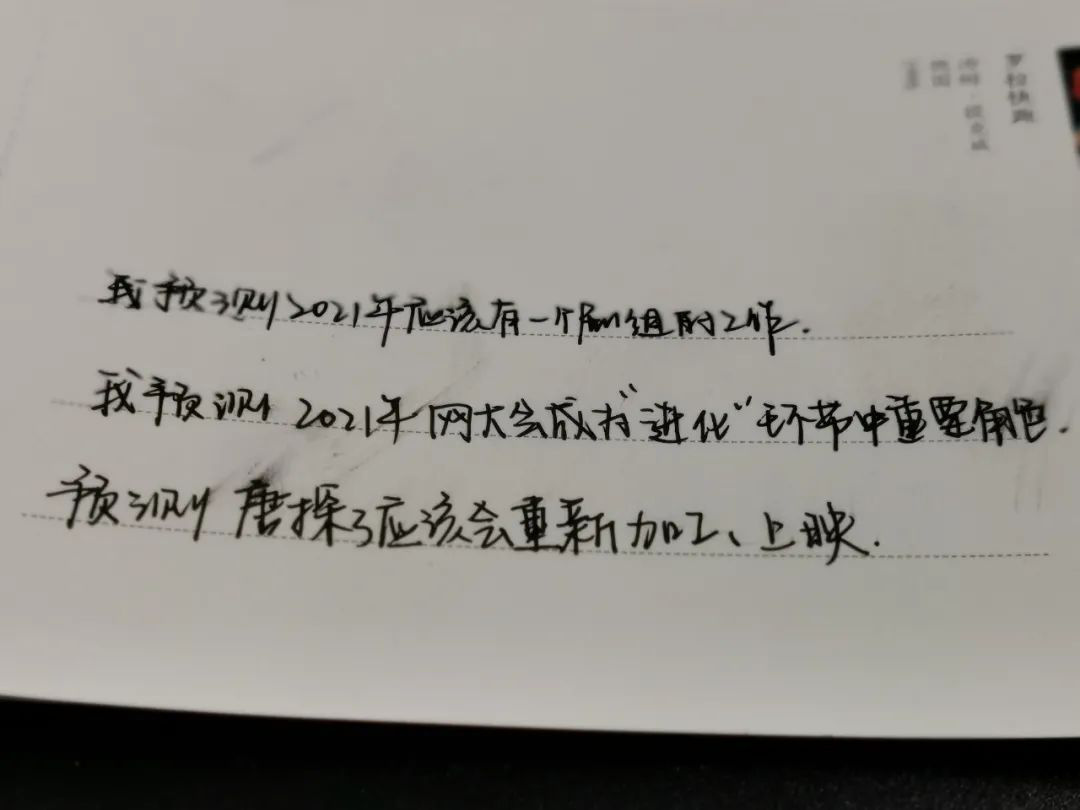 罗拉快跑
汤姆·提克威
德国
我预测2021年应该有一个剧组的工作.
我预测 2021年网大会成为"进化"环节中重要角色.
预测 唐探3应该会重新加工、上映.